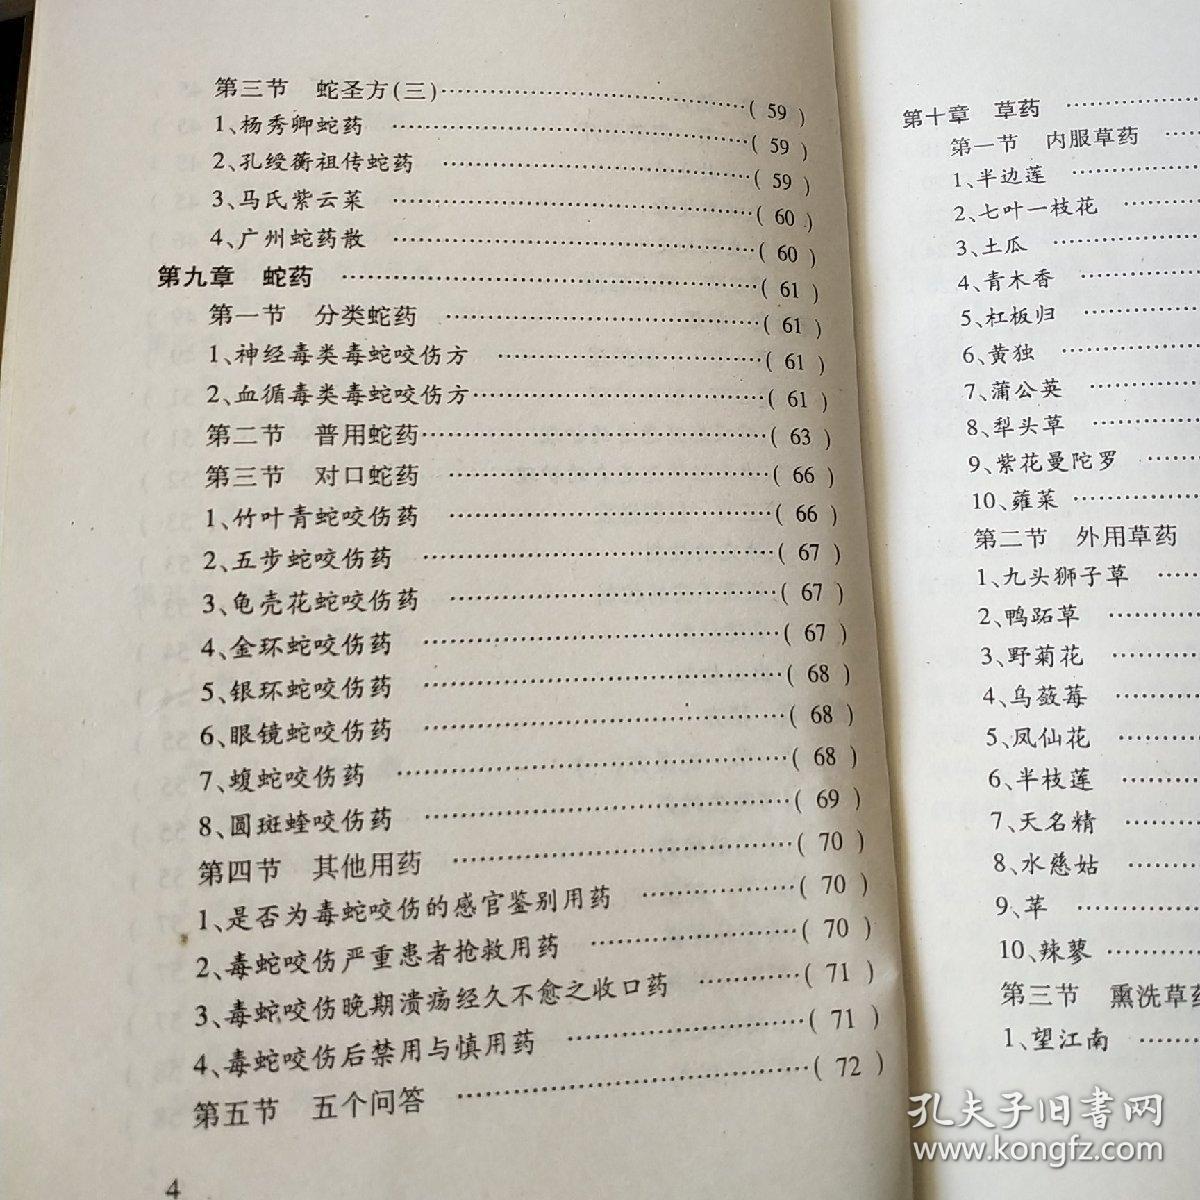 第三节 蛇圣方(三)……………………………( 59 )
1、杨秀卿蛇药 ……………………………( 59 )
2、孔绶蘅祖传蛇药 ……………………………( 59 )
3、马氏紫云菜 ……………………………( 60 )
4、广州蛇药散 ……………………………( 60 )
第九章 蛇药 ……………………………( 61 )
第一节 分类蛇药 ……………………………( 61 )
1、神经毒类毒蛇咬伤方 ……………………( 61 )
2、血循毒类毒蛇咬伤方……………………( 61 )
第二节 普用蛇药……………………………( 63 )
第三节 对口蛇药 ……………………………( 66 )
1、竹叶青蛇咬伤药 ……………………………( 66 )
2、五步蛇咬伤药 ……………………………( 67 )
3、龟壳花蛇咬伤药 ……………………………( 67 )
4、金环蛇咬伤药 ……………………………( 67 )
5、银环蛇咬伤药 ……………………………( 68 )
6、眼镜蛇咬伤药 ……………………………( 68 )
7、蝮蛇咬伤药 ……………………………( 68 )
8、圆斑蝰咬伤药 ……………………………( 69 )
第四节 其他用药 ……………………………( 70 )
1、是否为毒蛇咬伤的感官鉴别用药 ……………( 70 )
2、毒蛇咬伤严重患者抢救用药 ………………( 70 )
3、毒蛇咬伤晚期溃疡经久不愈之收口药 …………( 71 )
4、毒蛇咬伤后禁用与慎用药 …………………( 71 )
第五节 五个问答 ……………………………( 72 )
4
第十章 草药 ……………
第一节 内服草药 ……
1、半边莲 ……………
2、七叶一枝花 ………
3、土瓜 ……………
4、青木香 ……………
5、杠板归 ……………
6、黄独 ……………
7、蒲公英 ……………
8、犁头草 ……………
9、紫花曼陀罗 ………
10、蕹菜 ……………
第二节 外用草药
1、九头狮子草 ……
2、鸭跖草 …………
3、野菊花 …………
4、乌蔹莓 …………
5、凤仙花 …………
6、半枝莲 …………
7、天名精 …………
8、水慈姑 …………
9、苹 ……………
10、辣蓼 …………
第三节 熏洗草药
1、望江南 ………
孔夫子旧书网
www.kongfz.com